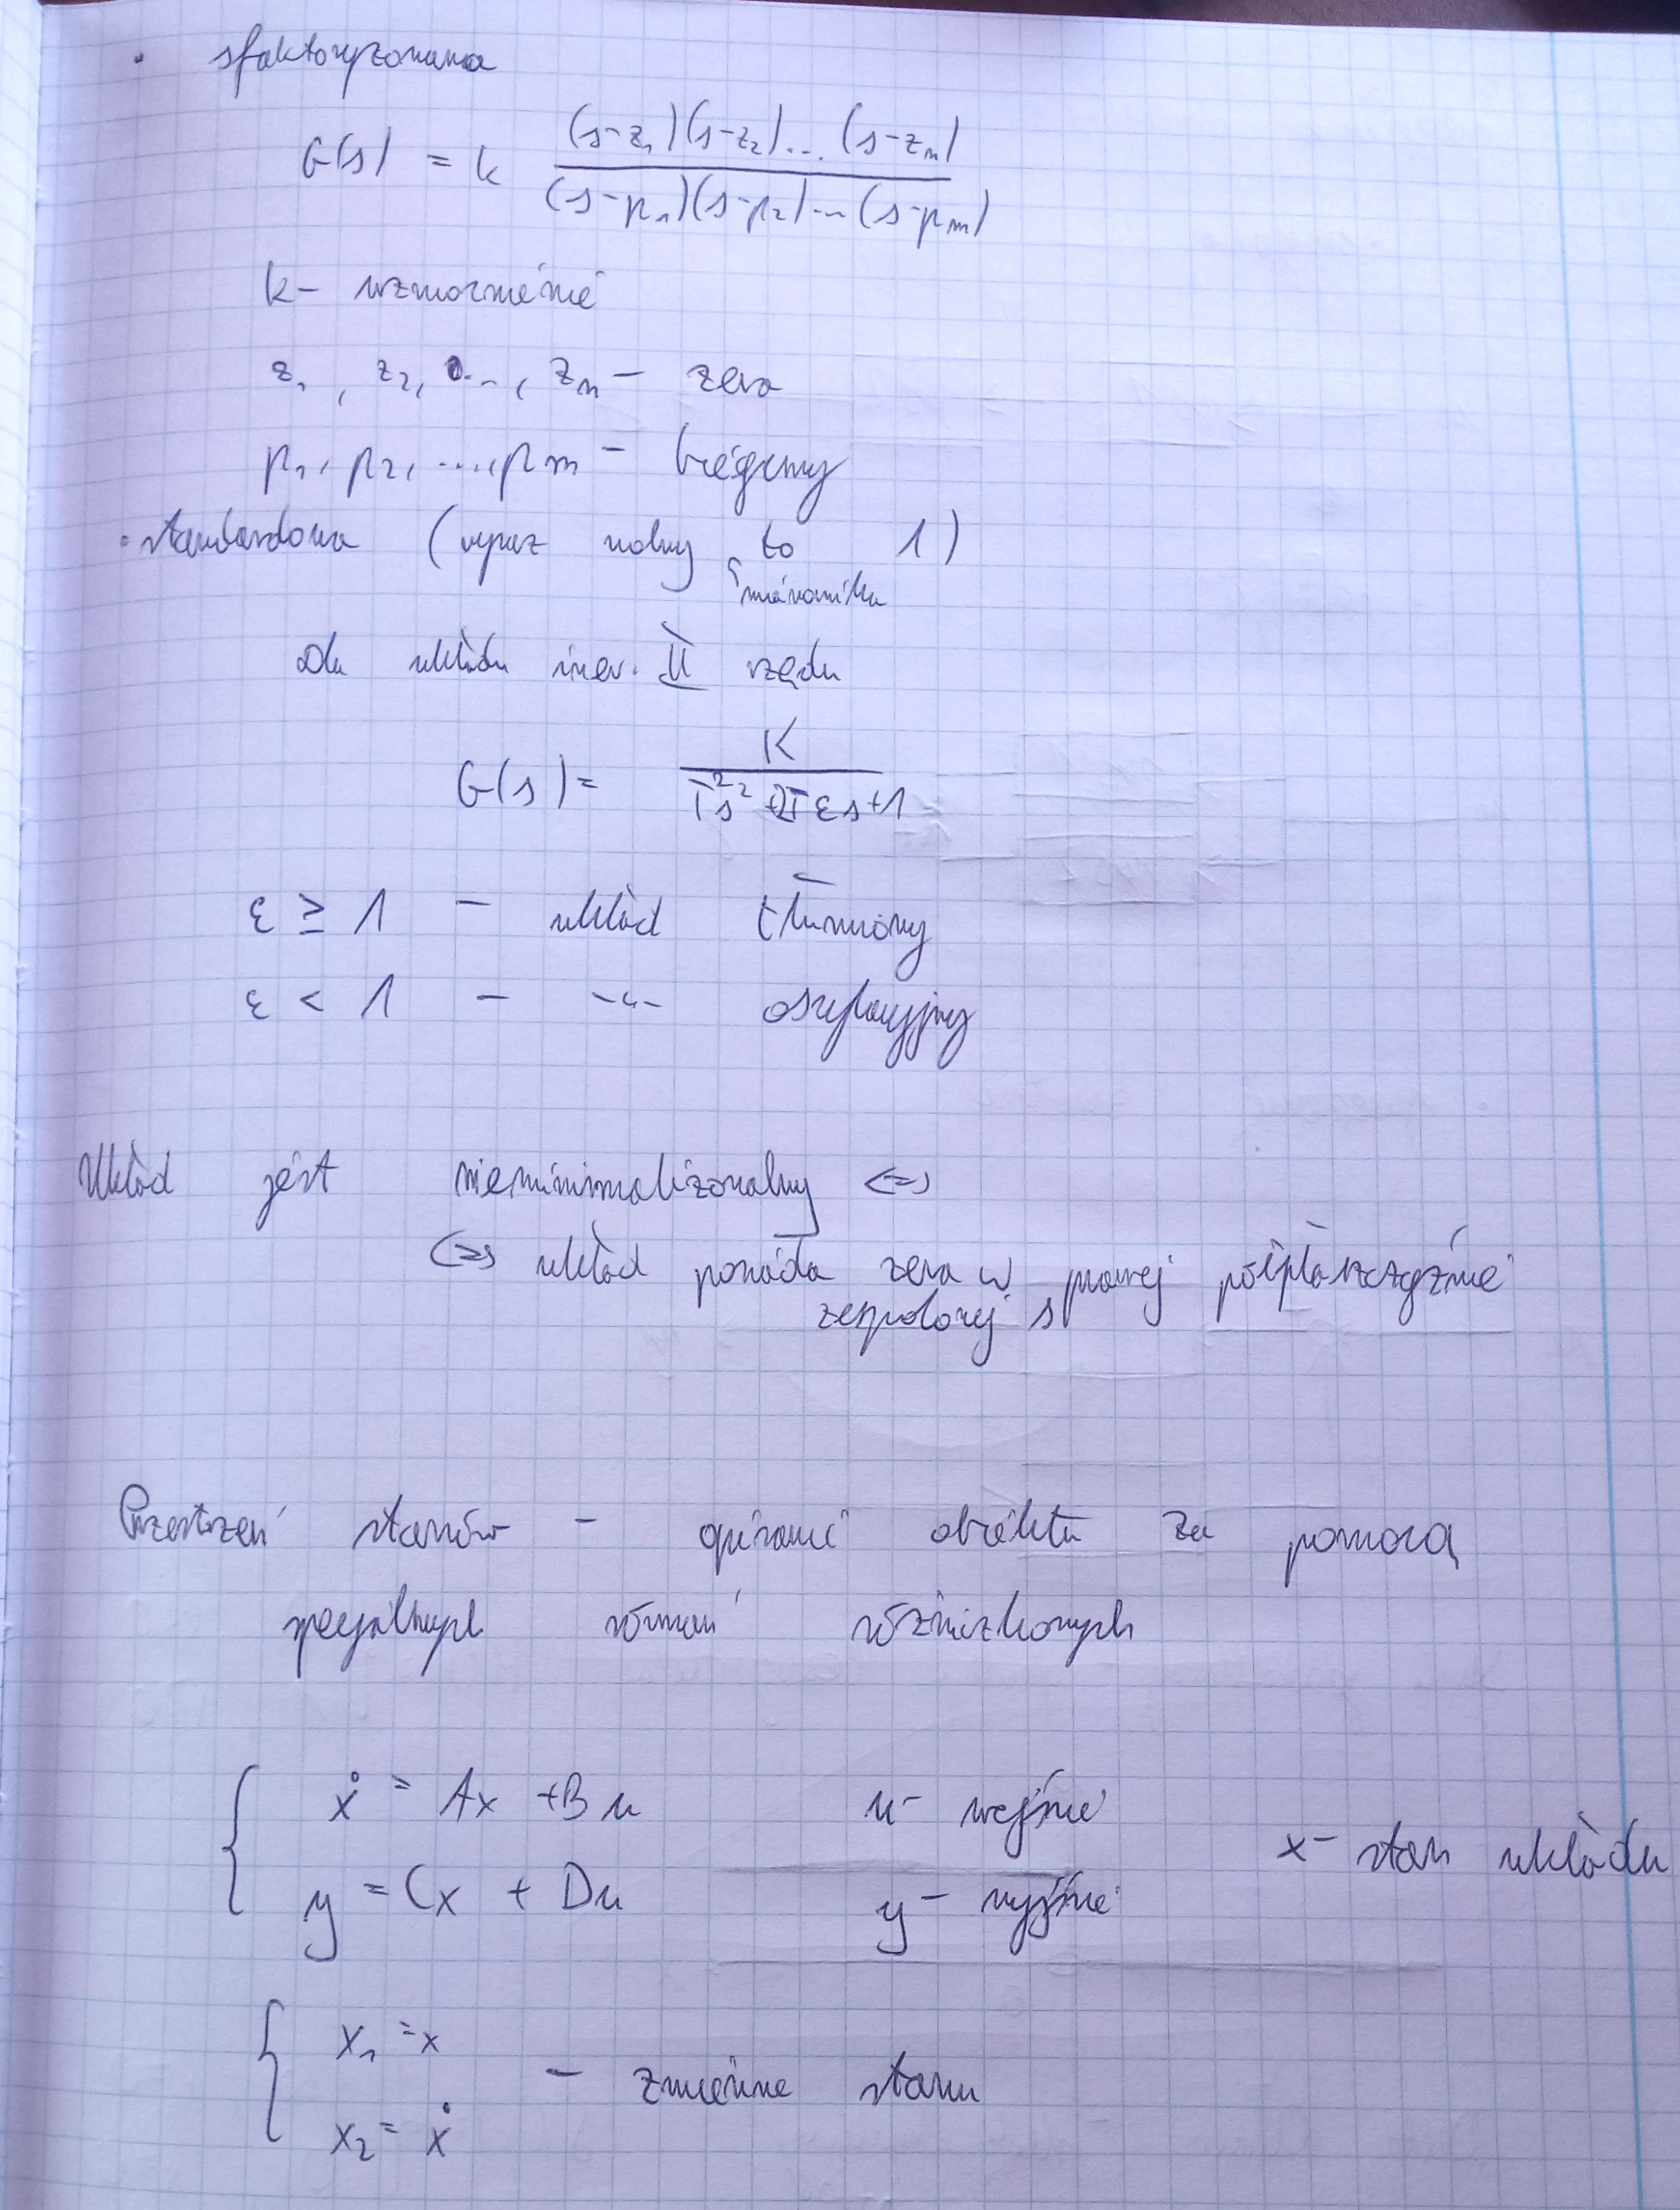 • sfaktoryzowana
G(s) = k \frac{(s-z_1)(s-z_2)...(s-z_n)}{(s-p_1)(s-p_2)...(s-p_m)}
k - wzmocnienie
z_1, z_2, ..., z_n - zera
p_1, p_2, ..., p_m - bieguny
• standardowa (wyraz wolny to 1)
mianownika
Dla układu iner. II rzędu
G(s) = \frac{K}{T^2s^2+2Tεs+1}
ε ≥ 1 - układ tłumiony
ε < 1 - -"- oscylacyjny
Układ jest <=>
<=> układ posiada zera w prawej półpłaszczyźnie
zespolonej s
Przestrzeń stanów - opisanie obiektu za pomocą
specjalnych równań różniczkowych
ẋ = Ax + Bu u - wejście
x - stan układu
y = Cx + Du y - wyjście
x_1 = x
- zmienne stanu
x_2 = ẋ